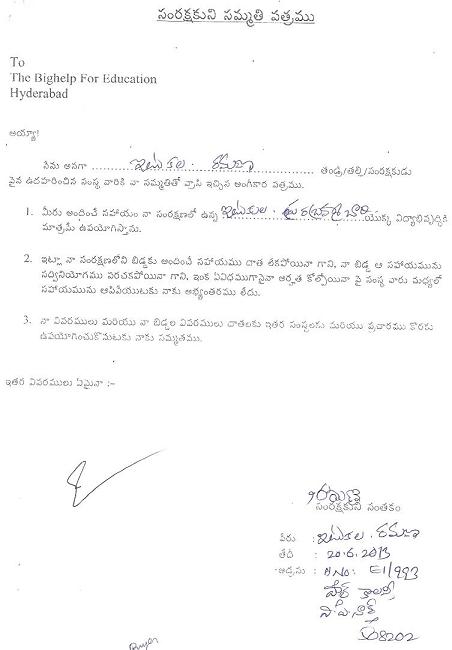 సంరక్షకుని సమ్మతి పత్రము
To
The Bighelp For Education
Hyderabad
అయ్యా!
నేను అనగా ఇటుకల రమణ తండ్రి/తల్లి/సంరక్షకుడు
పైన ఉదహరించిన సంస్థ వారికి నా సమ్మతితో వ్రాసి ఇచ్చిన అంగీకార పత్రము.
1. మీరు అందించే సహాయం నా సంరక్షణలో ఉన్న ఇటుకల యొక్క విద్యాభివృద్ధికి
మాత్రమే ఉపయోగిస్తాను.
2. ఇట్లా నా సంరక్షణలోని బిడ్డకు అందించే సహాయము దాత లేకపోయినా గాని, నా బిడ్డ ఆ సహాయమును
సద్వినియోగము పరచకపోయినా గాని, ఇంక ఏవిధముగానైనా అర్హత కోల్పోయినా పై సంస్థ వారు మధ్యలో
సహాయమును ఆపివేయుటకు నాకు అభ్యంతరము లేదు.
3. నా వివరములు మరియు నా బిడ్డల వివరములు దాతలకు ఇతర సంస్థలకు మరియు ప్రచారము కొరకు
ఉపయోగించుకొనుటకు నాకు సమ్మతము.
ఇతర వివరములు ఏమైనా :-
సంరక్షకుని సంతకం
పేరు : ఇటుకల రమణ
తేదీ : 20.6.2013
అడ్రసు : HNO: E1/993